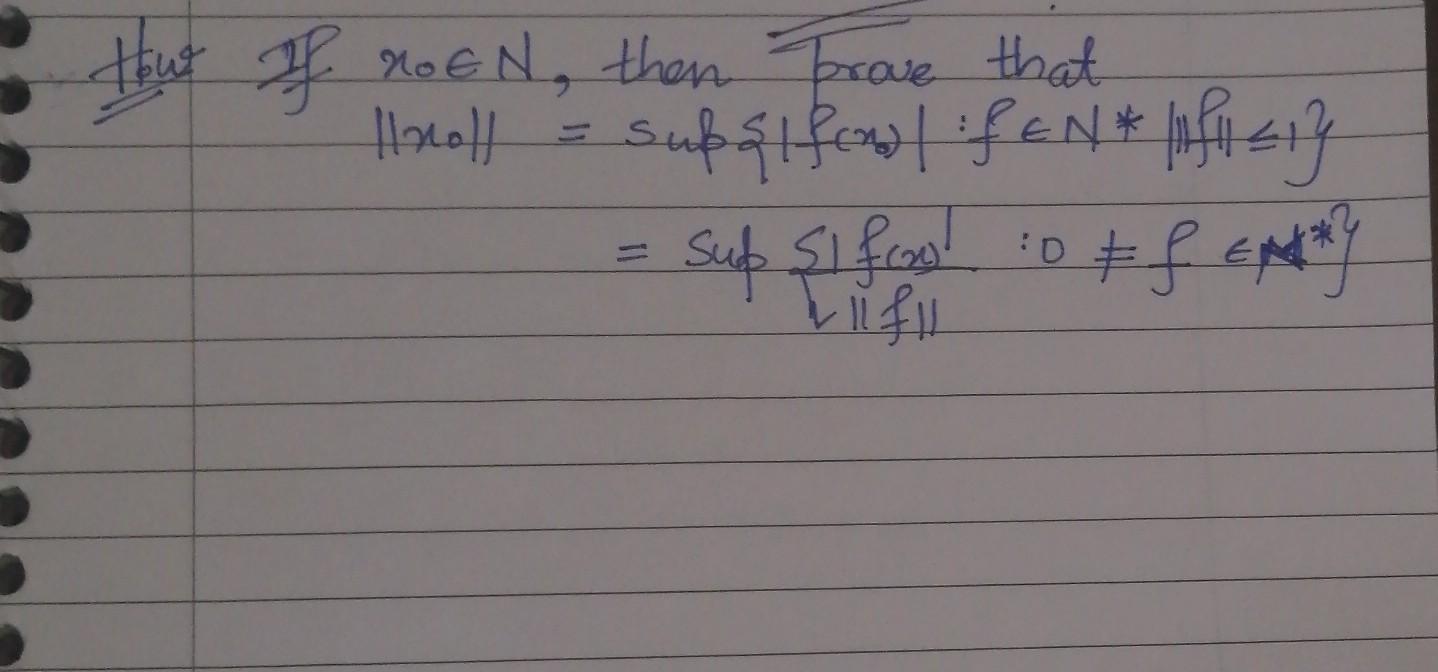 Hw If x₀ ∈ N, then prove that
||x₀|| = sup {|f(x₀)| : f ∈ N* ||f|| ≤ 1}
= sup {|f(x)| / ||f|| : 0 ≠ f ∈ N*}